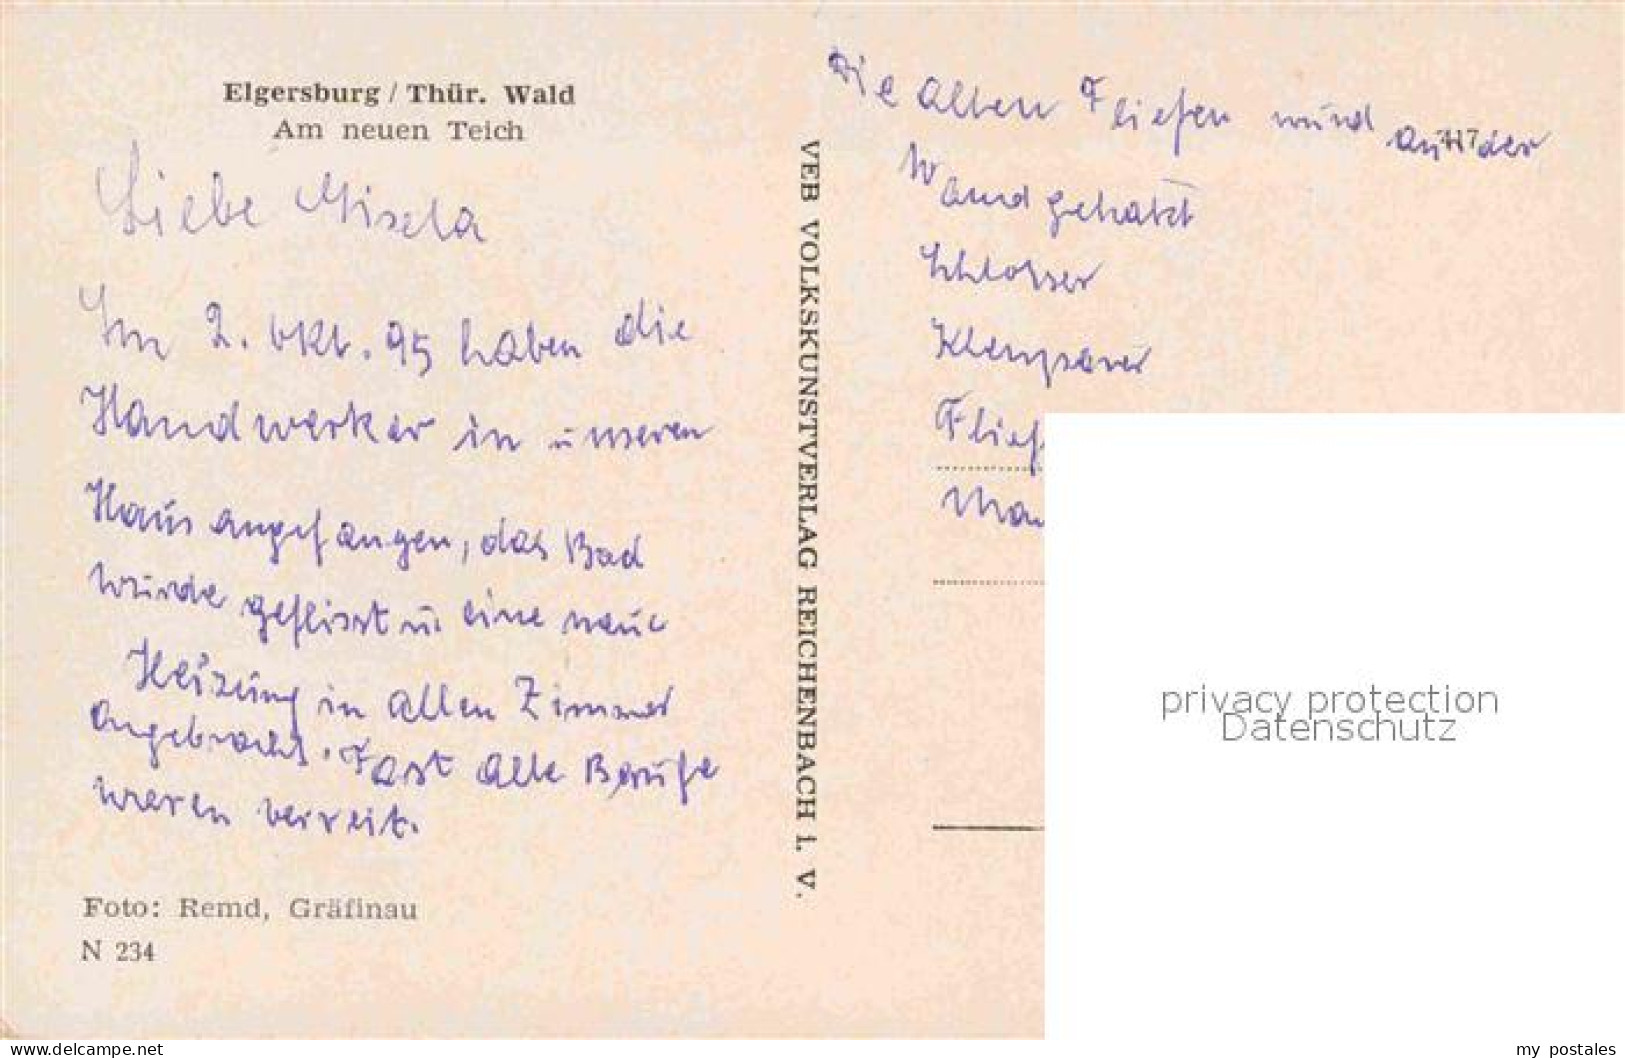 Elgersburg / Thür. Wald
Am neuen Teich
Liebe Gisela
Im 2. Okt. 95 haben die
Handwerker in unseren
Haus angefangen, das Bad
wurde geflisst u. eine neue
Heizung in allen Zimmer
angebracht. Fast alle Berufe
waren vereit.
Foto: Remd, Gräfinau
N 234
VEB VOLKSKUNSTVERLAG REICHENBACH i. V.
Die alten Fliesen wurd an der
Wand gehakt
Schlosser
Klempner
Flies
Mau
privacy protection
Datenschutz
www.delcampe.net
my_postales